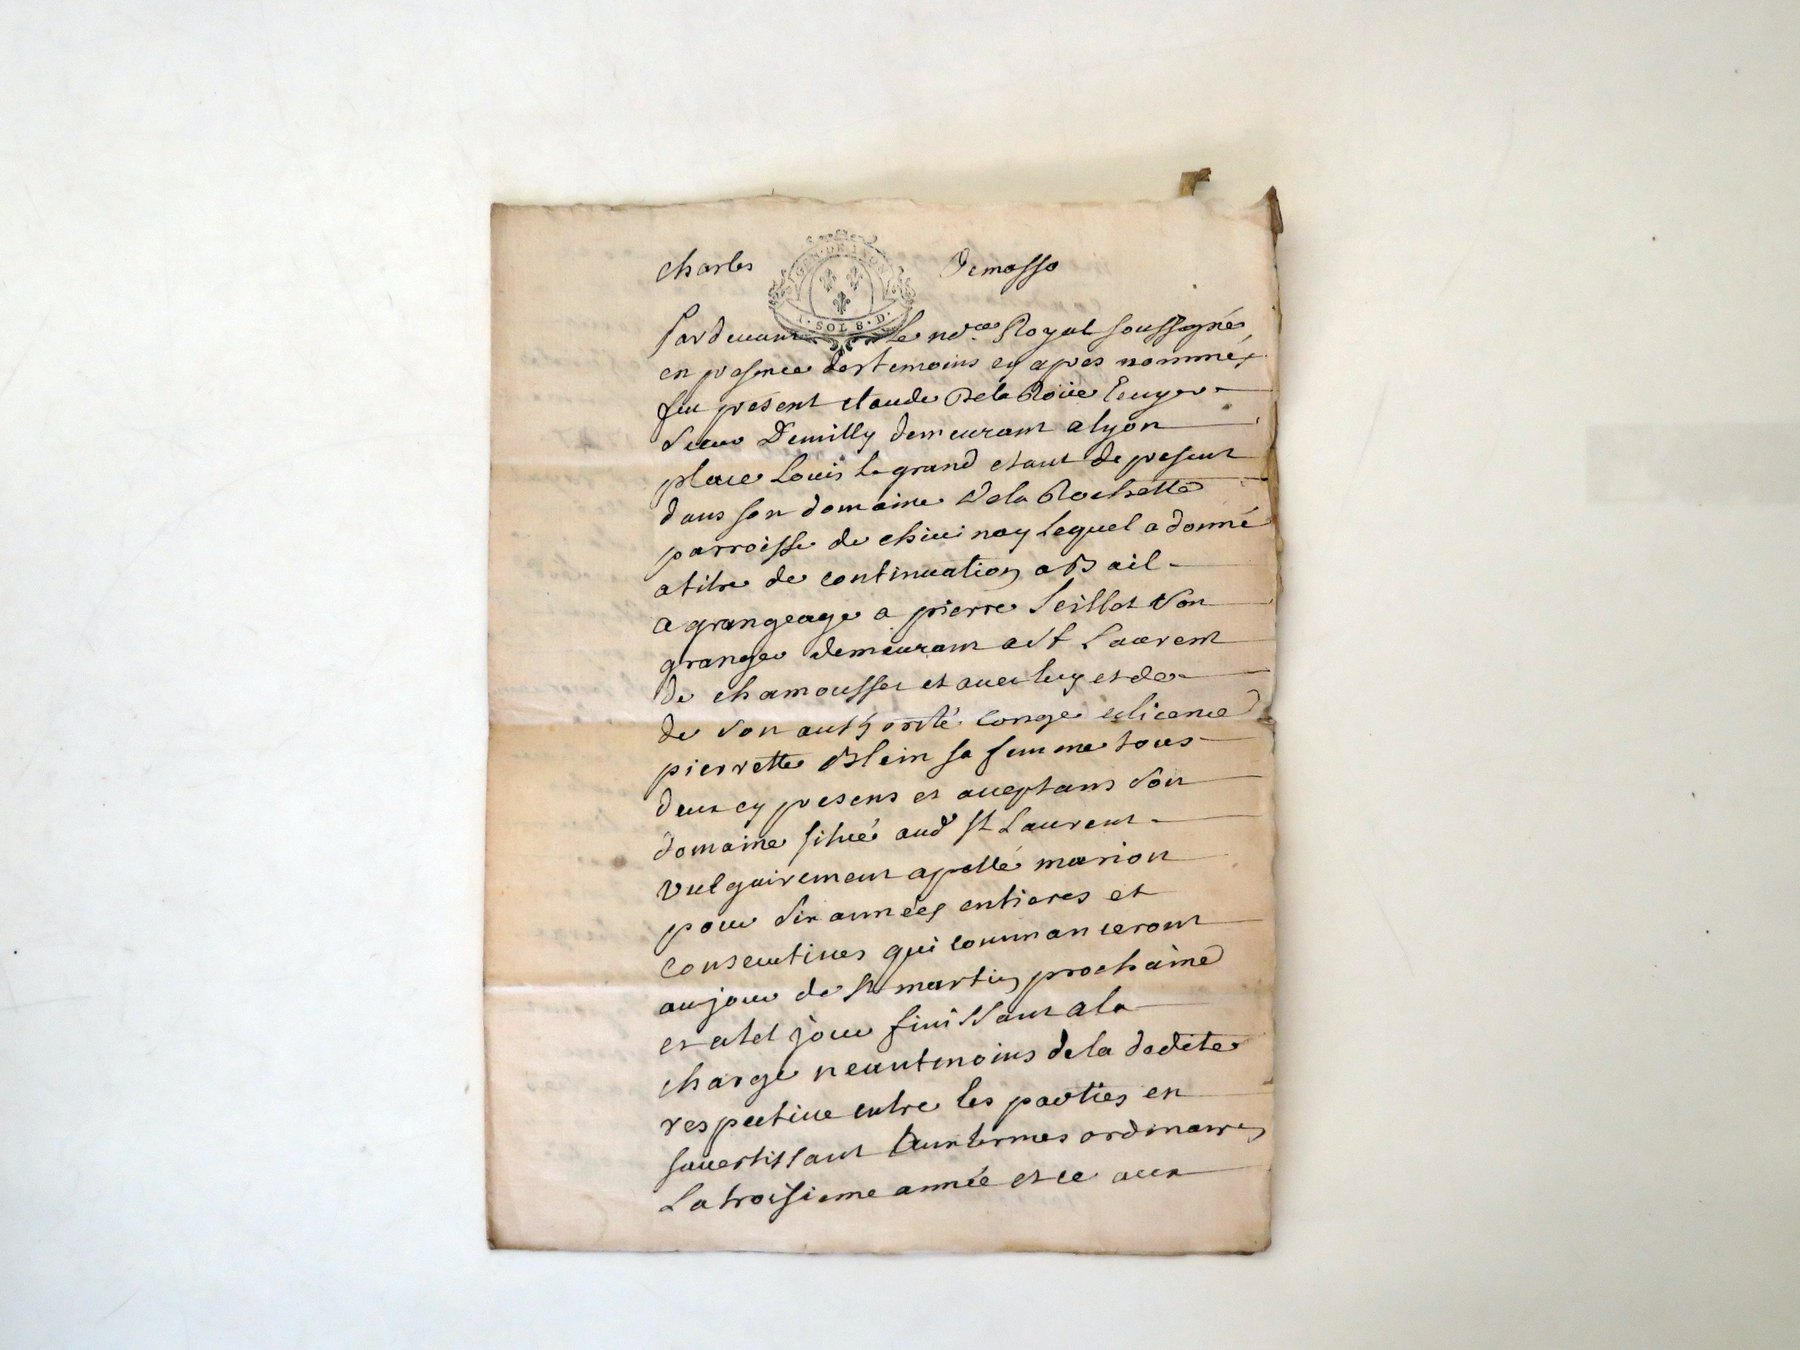 charles Demosso
GEN. DE LYON
1. SOL 8. D.
Pardevant Le nore Royal soussigné
en presence des temoins cy apres nommés
fut présent claude Dela Roüe Ecuyer
sieur Demilly demeurant a lyon
place Louis le grand etant de present
dans son domaine Dela Rochette
parroisse de chivinay lequel a donné
a titre de continuation a Bail
a grangeage a pierre seillot son
granger demeurant a St Laurent
de chamousset et avec luy et de
de son authorité conge et licence
pierrette Blein sa femme tous
deux cy presens et acceptans son
domaine situé aud St Laurent
vulgairement apellé marion
pour six années entieres et
consecutives qui commanceront
au jour de St martin prochaine
et a tel jour finissant a la
charge neantmoins de la dedite
respective entre les parties en
savertissant aux termes ordinaires
La troisieme année et ce aux